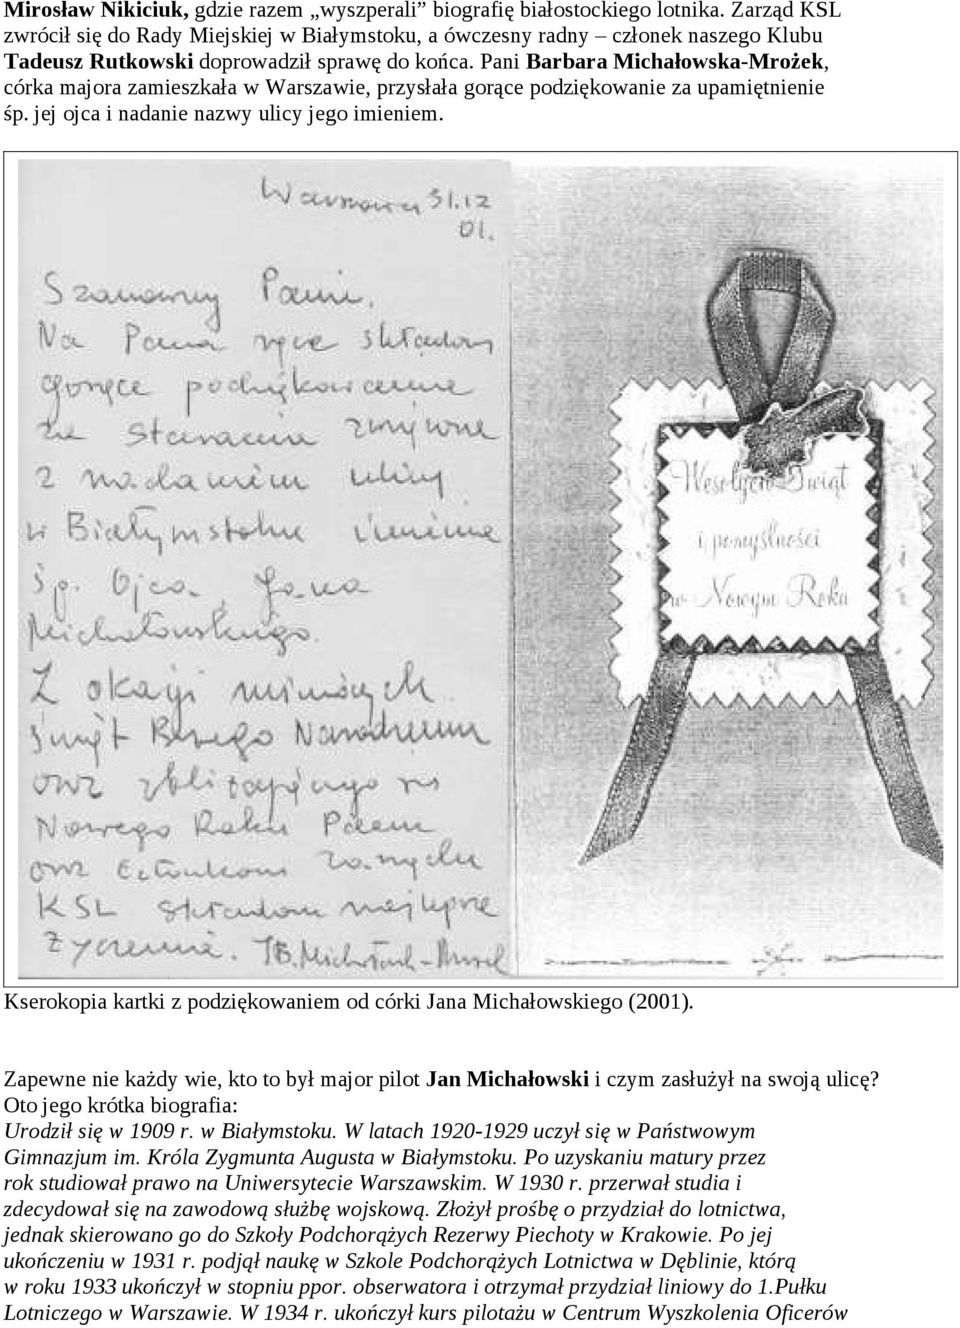 Mirosław Nikiciuk, gdzie razem „wyszperali” biografię białostockiego lotnika. Zarząd KSL
zwrócił się do Rady Miejskiej w Białymstoku, a ówczesny radny – członek naszego Klubu
Tadeusz Rutkowski doprowadził sprawę do końca. Pani Barbara Michałowska-Mrożek,
córka majora zamieszkała w Warszawie, przysłała gorące podziękowanie za upamiętnienie
śp. jej ojca i nadanie nazwy ulicy jego imieniem.
Warszawa 31.12
01.
Szanowny Panie.
Na Pana ręce składam
gorące podziękowanie
za starania związane
z nadaniem ulicy
w Białymstoku imienia
śp. Ojca, Jana
Michałowskiego.
Z okazji minionych
świąt Bożego Narodzenia
oraz zbliżającego się
Nowego Roku Panu
oraz Członkom
KSL składam najlepsze
życzenia. B. Michałowska-Mrożek
Wesołych Świąt
i pomyślności
w Nowym Roku
Kserokopia kartki z podziękowaniem od córki Jana Michałowskiego (2001).
Zapewne nie każdy wie, kto to był major pilot Jan Michałowski i czym zasłużył na swoją ulicę?
Oto jego krótka biografia:
Urodził się w 1909 r. w Białymstoku. W latach 1920-1929 uczył się w Państwowym
Gimnazjum im. Króla Zygmunta Augusta w Białymstoku. Po uzyskaniu matury przez
rok studiował prawo na Uniwersytecie Warszawskim. W 1930 r. przerwał studia i
zdecydował się na zawodową służbę wojskową. Złożył prośbę o przydział do lotnictwa,
jednak skierowano go do Szkoły Podchorążych Rezerwy Piechoty w Krakowie. Po jej
ukończeniu w 1931 r. podjął naukę w Szkole Podchorążych Lotnictwa w Dęblinie, którą
w roku 1933 ukończył w stopniu ppor. obserwatora i otrzymał przydział liniowy do 1.Pułku
Lotniczego w Warszawie. W 1934 r. ukończył kurs pilotażu w Centrum Wyszkolenia Oficerów